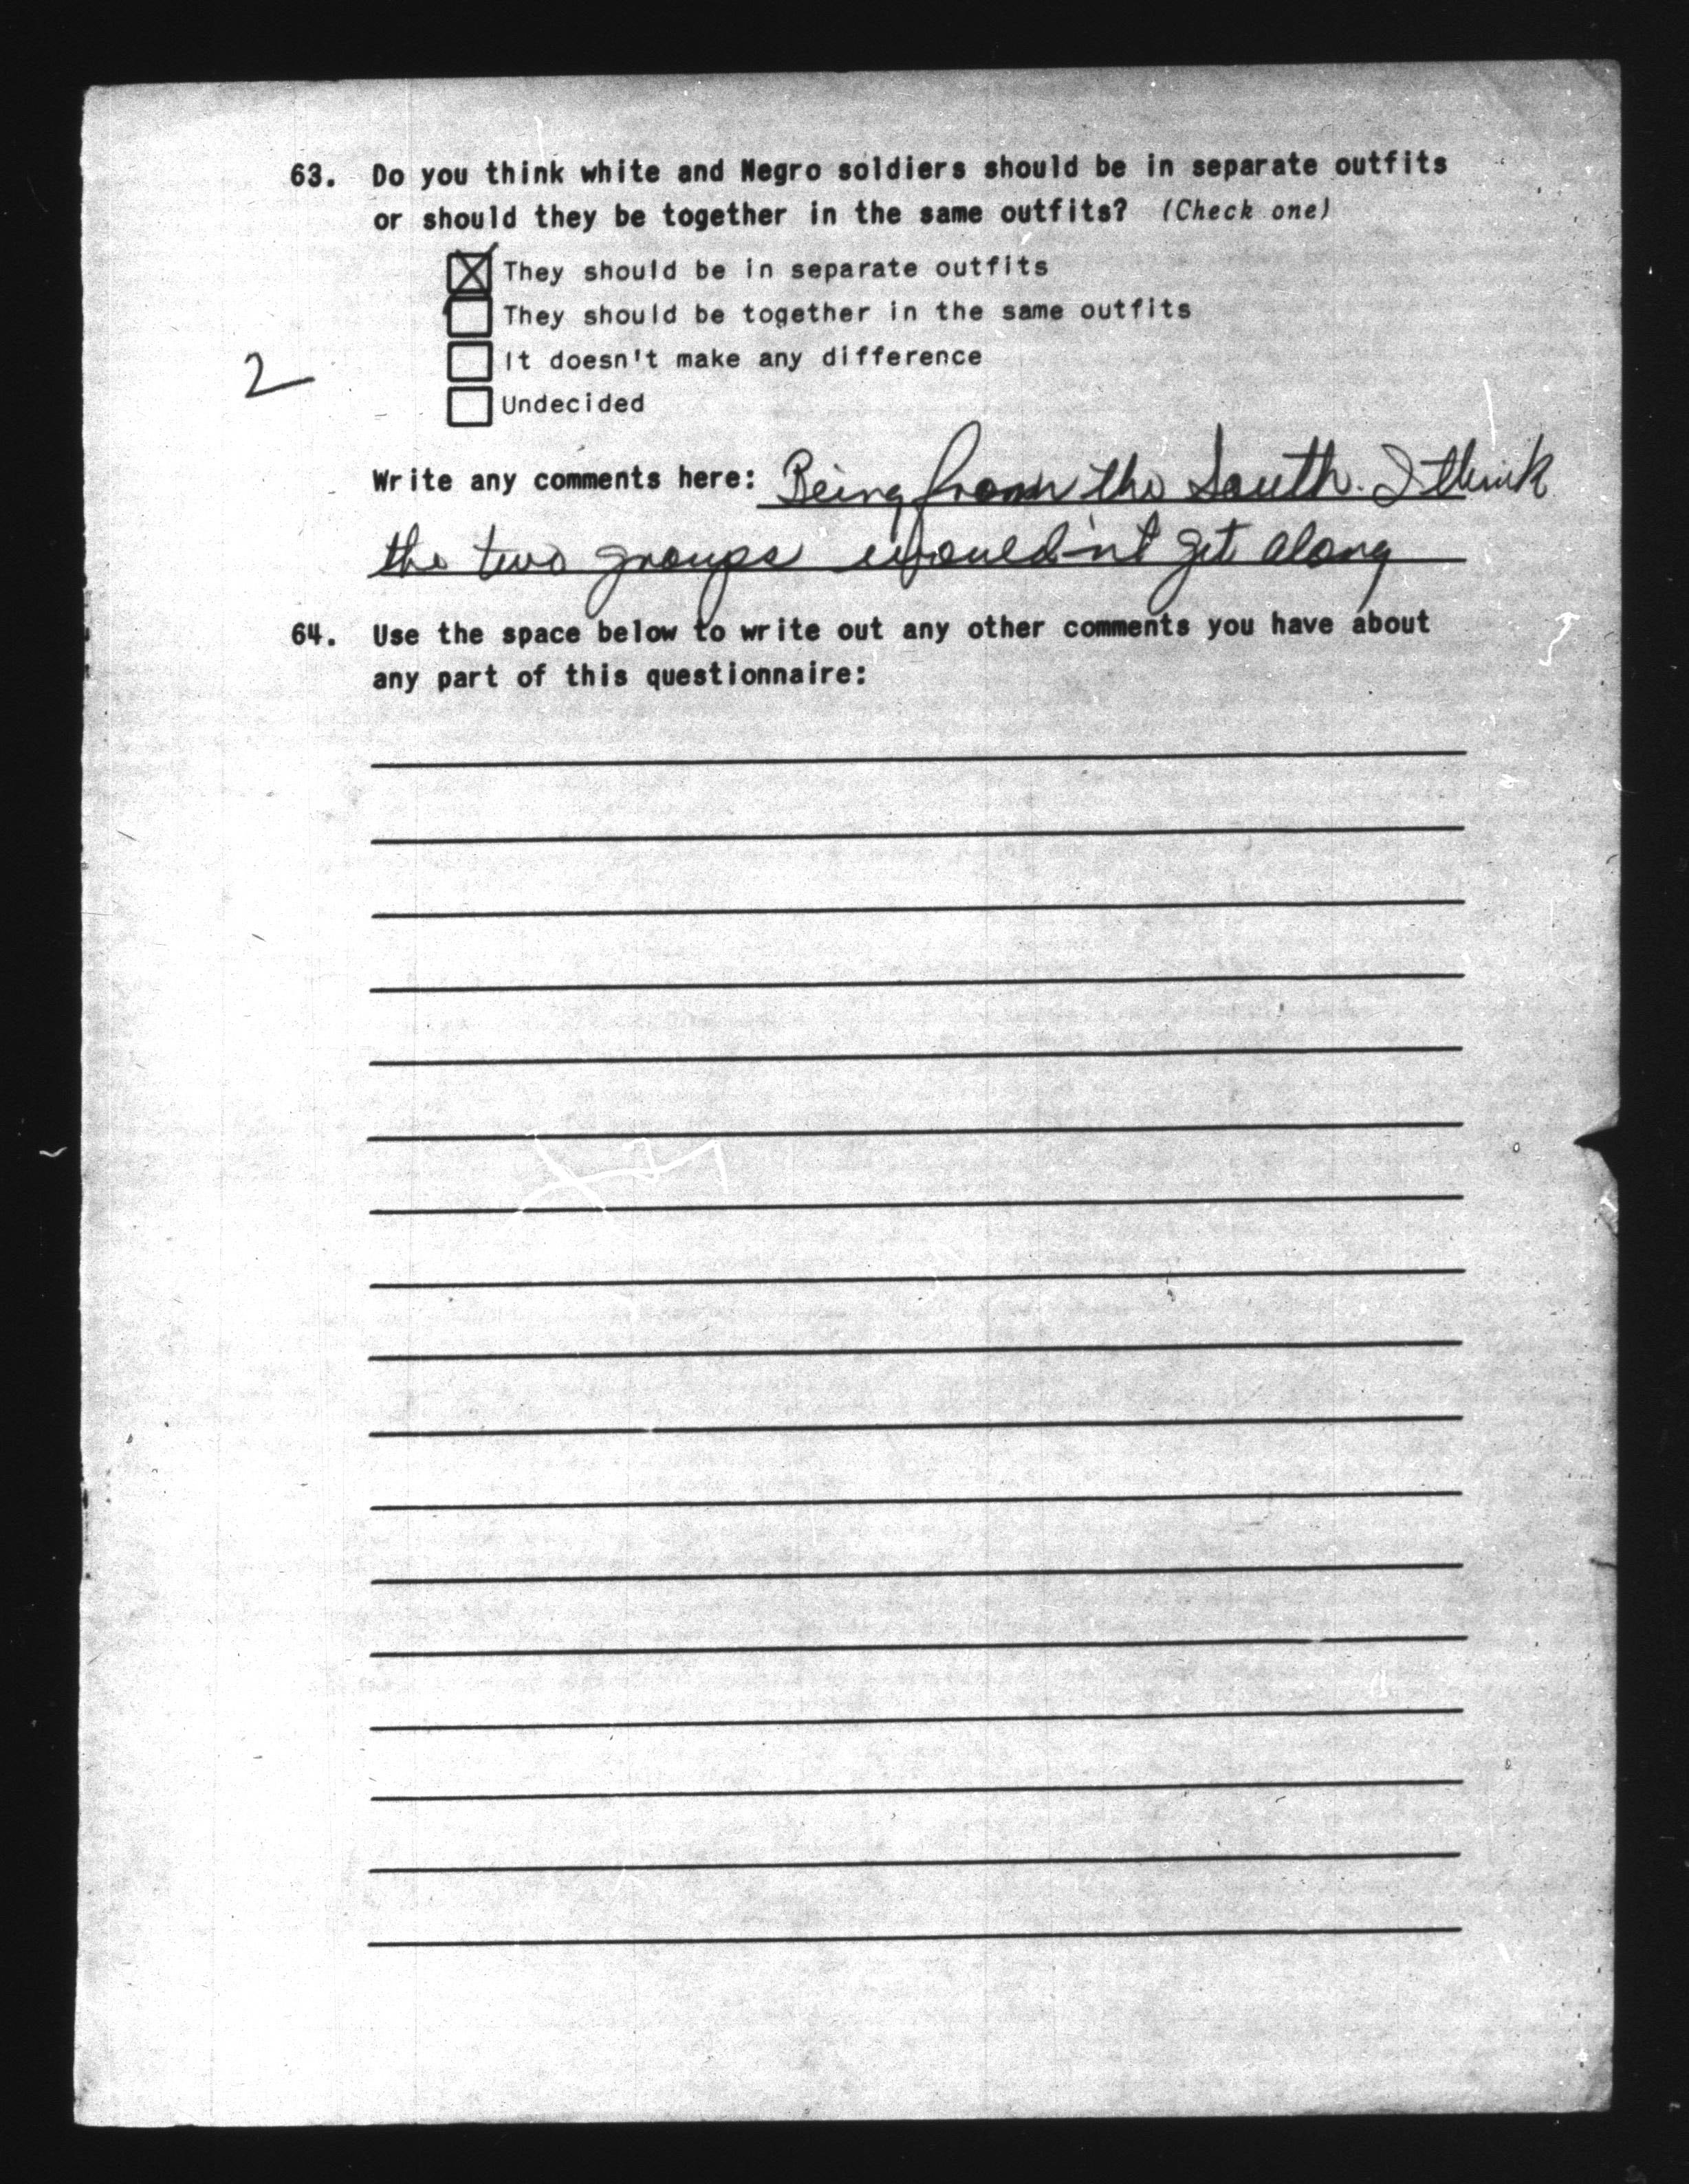 63. Do you think white and Negro soldiers should be in separate outfits
or should they be together in the same outfits? (Check one)
They should be in separate outfits
They should be together in the same outfits
2
It doesn't make any difference
Undecided
Write any comments here: Being from the South. I think
the two groups wouldn't get along
64. Use the space below to write out any other comments you have about
any part of this questionnaire: